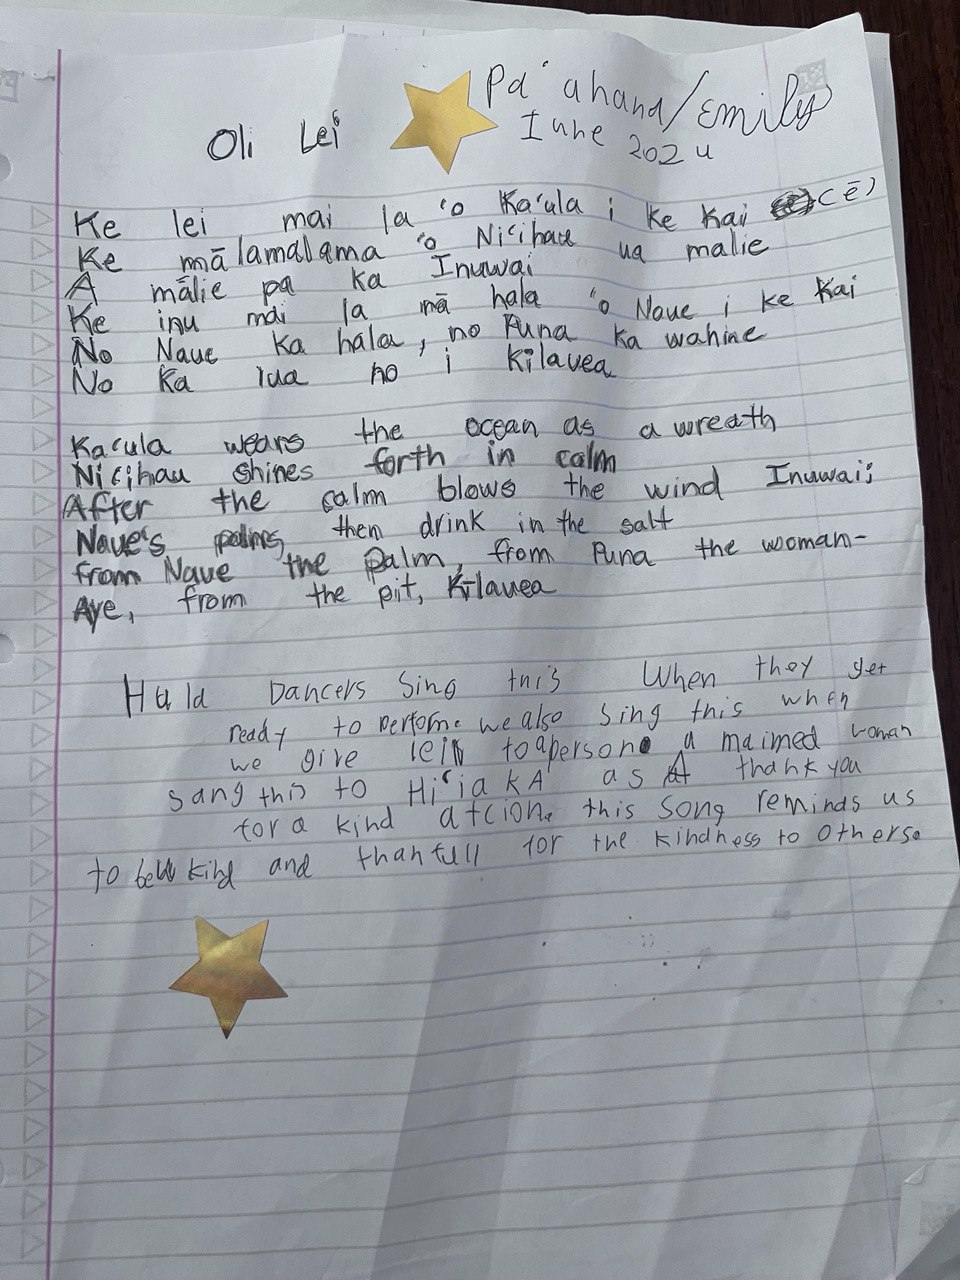 Oli Lei
Pa'ahana/Emily
June 2024
Ke lei mai la 'o Ka'ula i ke kai (ē)
Ke mālamalama 'o Ni'ihau ua malie
A mālie pa ka Inuwai
Ke inu mai la mā hala 'o Naue i ke Kai
No Naue ka hala, no Puna ka wahine
No ka lua no i Kilauea
Ka'ula wears the ocean as a wreath
Ni'ihau shines forth in calm
After the calm blows the wind Inuwai;
Naue's palms then drink in the salt
from Naue the Palm, from Puna the woman-
Aye, from the pit, Kilauea
Hula Dancers Sing this When they get
ready to perform. we also sing this when
we give leis to a person a maimed woman
sang this to Hi'iaka as A thank you
for a kind atcion. this song reminds us
to be kind and thankfull for the kindness to others.